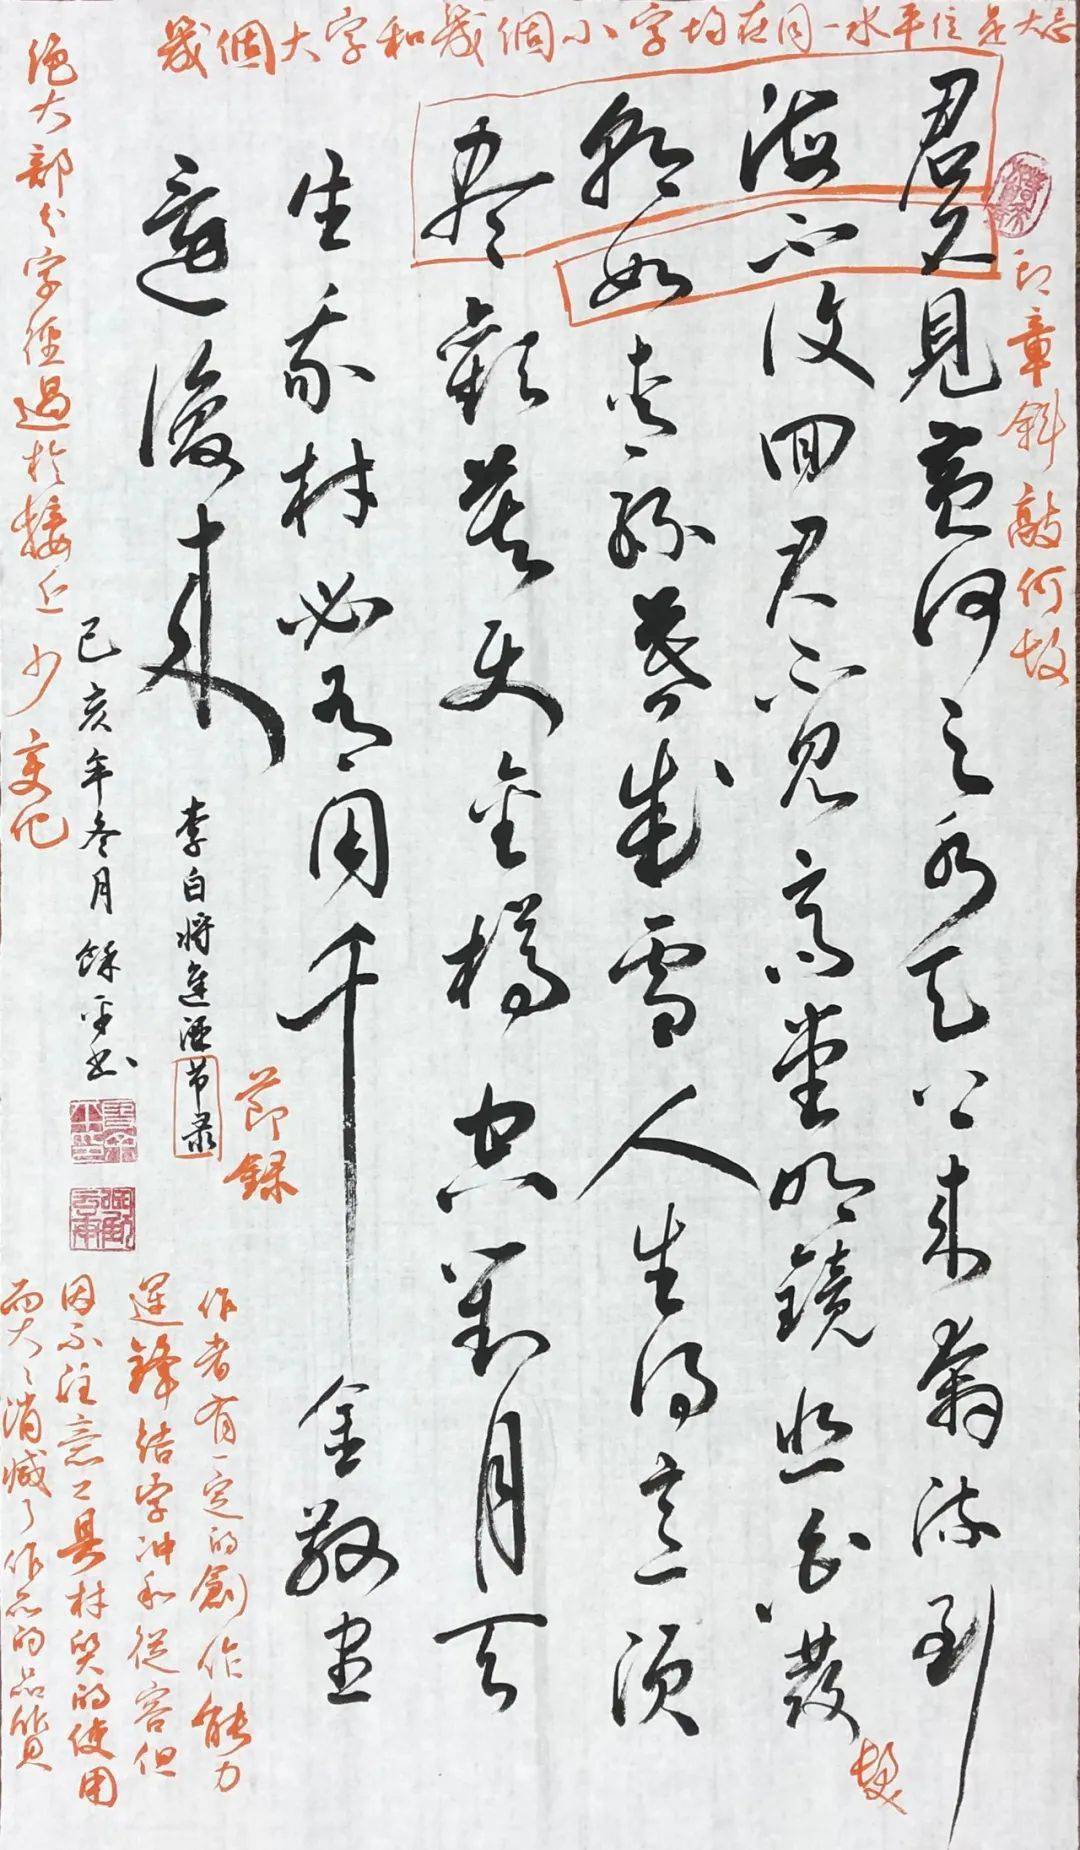 幾個大字和幾個小字均在同一水平位是大忌
印章斜敲何故
君不見黃河之水天上來奔流到
海不復回君不見高堂明鏡悲白發
髮
朝如青絲暮成雪人生得意須
盡歡莫使金樽空對月天
生我材必有用千金散盡
還復來
李白將進酒节录
節錄
己亥年冬月 餘平书
絕大部分字徑過於接近少變化
作者有一定的創作能力
運鋒結字冲和從容但
因不注意工具材質的使用
而大々消减了作品的品質